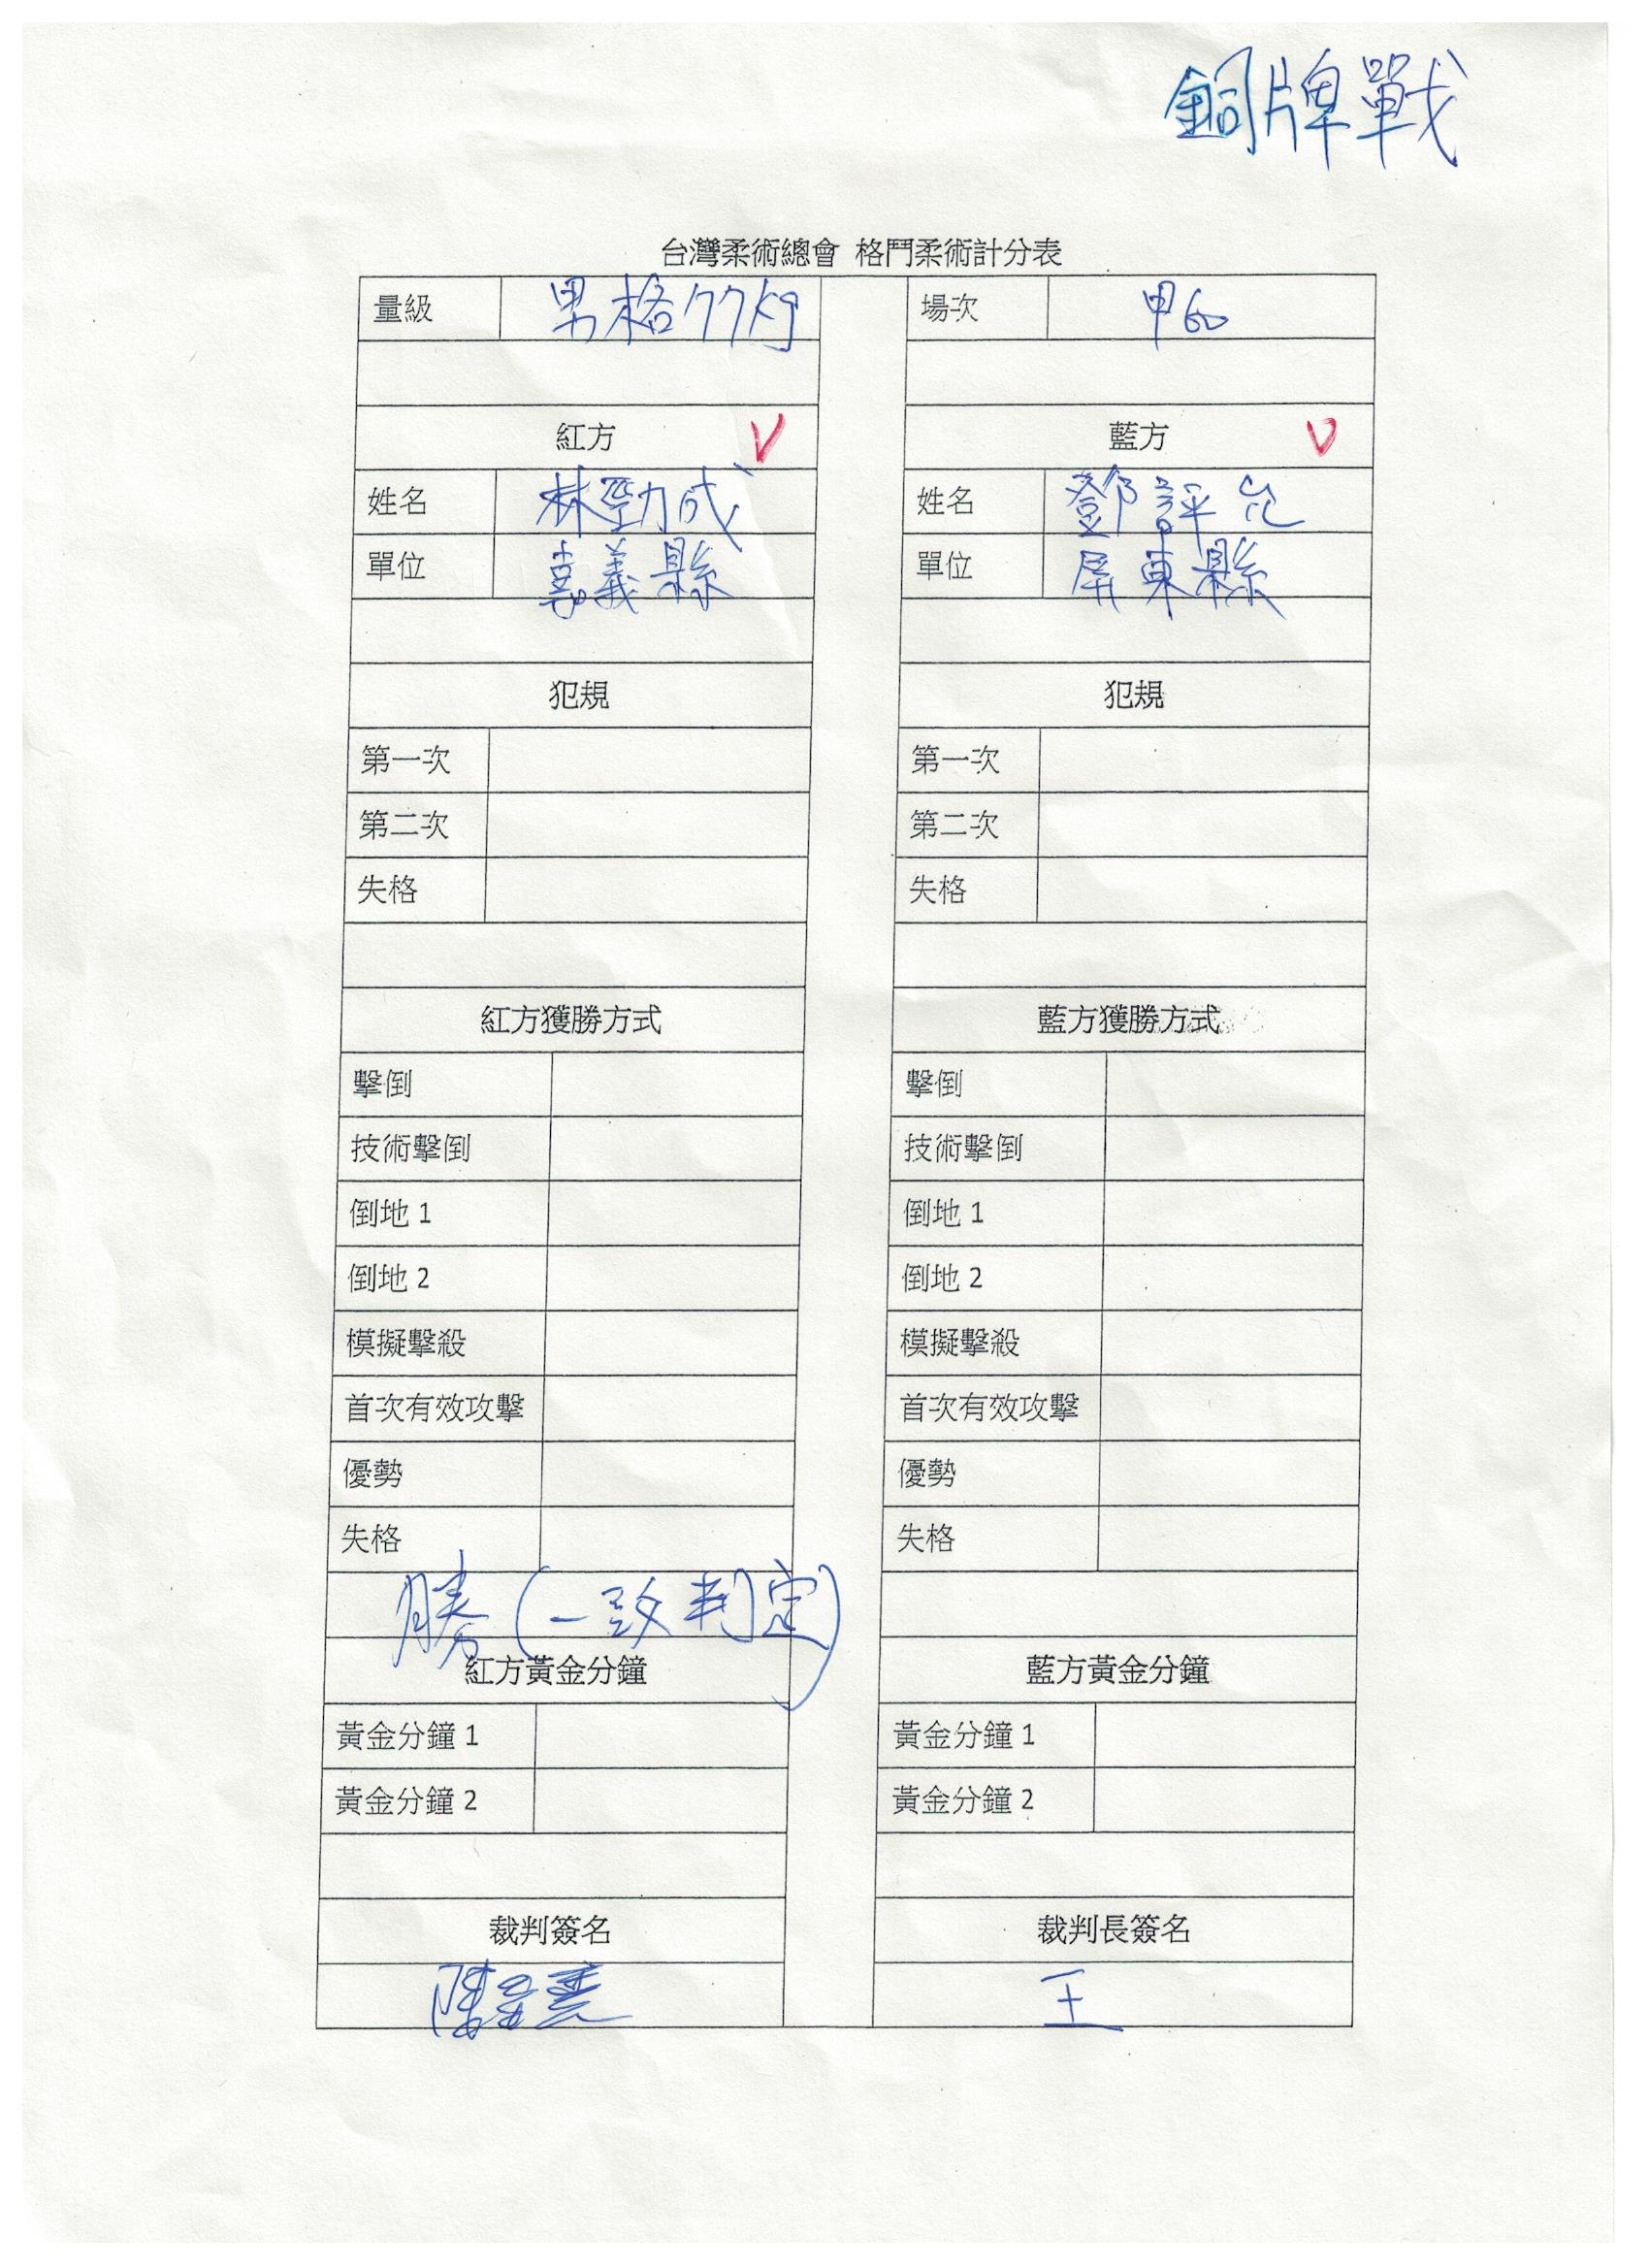 銅牌戰
台灣柔術總會 格鬥柔術計分表
量級 男格77kg 場次 甲60
紅方 V 藍方 V
姓名 林勁成 姓名 鄧評
單位 嘉義縣 單位 屏東縣
犯規 犯規
第一次 第一次
第二次 第二次
失格 失格
紅方獲勝方式 藍方獲勝方式
擊倒 擊倒
技術擊倒 技術擊倒
倒地 1 倒地 1
倒地 2 倒地 2
模擬擊殺 模擬擊殺
首次有效攻擊 首次有效攻擊
優勢 優勢
失格 失格
勝(一致判定)
紅方黃金分鐘 藍方黃金分鐘
黃金分鐘 1 黃金分鐘 1
黃金分鐘 2 黃金分鐘 2
裁判簽名 裁判長簽名
陳 王